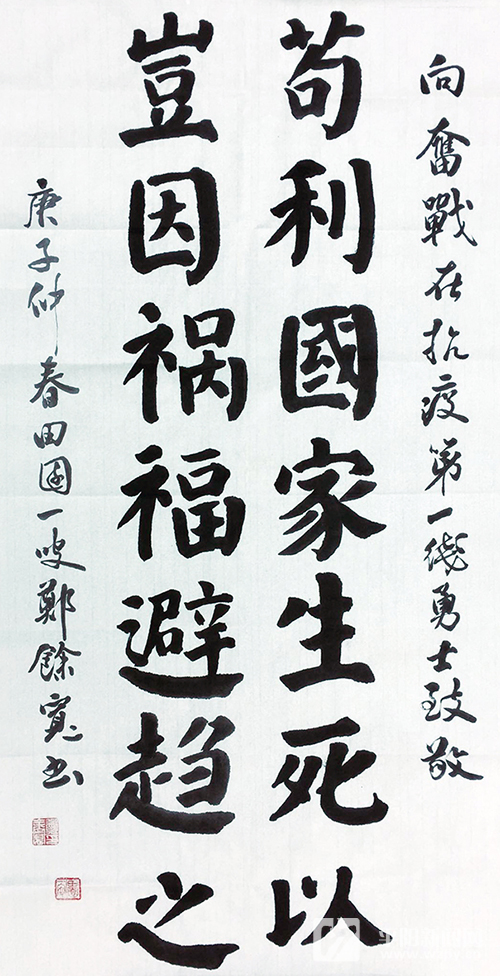 向奮戰在抗疫第一线勇士致敬
苟利國家生死以
豈因祸福避趋之
庚子仲春田園一叟鄭餘寬书